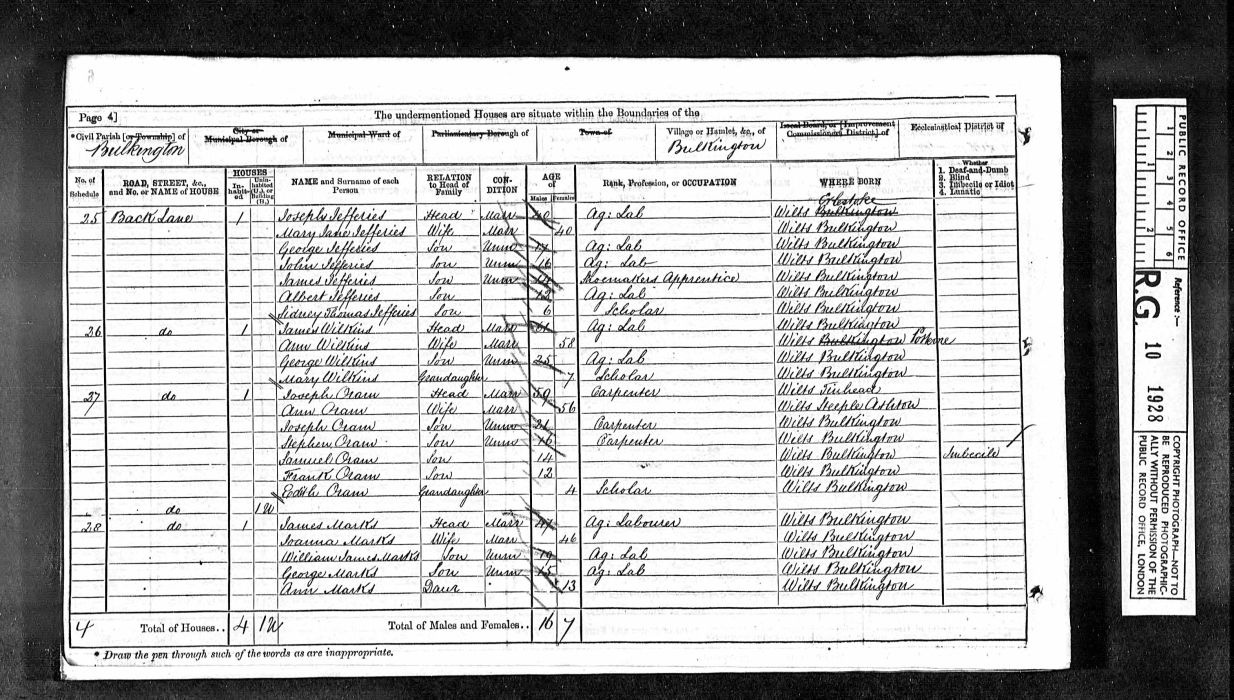 Page 4] The undermentioned Houses are situate within the Boundaries of the
*Civil Parish [or Township] of City or Municipal Borough of Municipal Ward of Parliamentary Borough of Town of Village or Hamlet, &c., of Local Board, or [Improvement Commissioners District] of Ecclesiastical District of
Bulkington Bulkington
No. of Schedule ROAD, STREET, &c., and No. or NAME of HOUSE HOUSES Inhabited Uninhabited (U.), or Building (B.) NAME and Surname of each Person RELATION to Head of Family CONDITION AGE of Males Females Rank, Profession, or OCCUPATION WHERE BORN Whether 1. Deaf-and-Dumb 2. Blind 3. Imbecile or Idiot 4. Lunatic
25 Back Lane 1 Joseph Jefferies Head Marr 40 Ag: Lab Wilts Bulkington
Mary Jane Jefferies Wife Marr 40 Wilts Bulkington
George Jefferies Son Unm Ag: Lab Wilts Bulkington
John Jefferies Son Unm 16 Ag: Lab Wilts Bulkington
James Jefferies Son Unm Shoemakers Apprentice Wilts Bulkington
Albert Jefferies Son 12 Ag: Lab Wilts Bulkington
Sidney Thomas Jefferies Son 6 Scholar Wilts Bulkington
26 do 1 James Wilkins Head Marr 61 Ag: Lab Wilts Bulkington
Ann Wilkins Wife Marr 58 Wilts Bulkington
George Wilkins Son Unm 25 Ag: Lab Wilts Bulkington
Mary Wilkins Grandaughter 7 Scholar Wilts Bulkington
27 do 1 Joseph Oram Head Marr 59 Carpenter Wilts Tinhead
Ann Oram Wife Marr 56 Wilts Steeple Ashton
Joseph Oram Son Unm 21 Carpenter Wilts Bulkington
Stephen Oram Son Unm Carpenter Wilts Bulkington
Samuel Oram Son 14 Wilts Bulkington Imbecile
Frank Oram Son 12 Wilts Bulkington
Edith Oram Grandaughter 4 Scholar Wilts Bulkington
do 1U
28 do 1 James Marks Head Marr 47 Ag: Labourer Wilts Bulkington
Joanna Marks Wife Marr 46 Wilts Bulkington
William James Marks Son Unm 19 Ag: Lab Wilts Bulkington
George Marks Son Unm 15 Ag: Lab Wilts Bulkington
Ann Marks Daur 13 Wilts Bulkington
4 Total of Houses.. 4 1U Total of Males and Females.. 16 7
* Draw the pen through such of the words as are inappropriate.
PUBLIC RECORD OFFICE
1 2 3 4 5 6
1 2
Reference :—
R.G. 10 1928
COPYRIGHT PHOTOGRAPH—NOT TO
BE REPRODUCED PHOTOGRAPHIC-
ALLY WITHOUT PERMISSION OF THE
PUBLIC RECORD OFFICE, LONDON